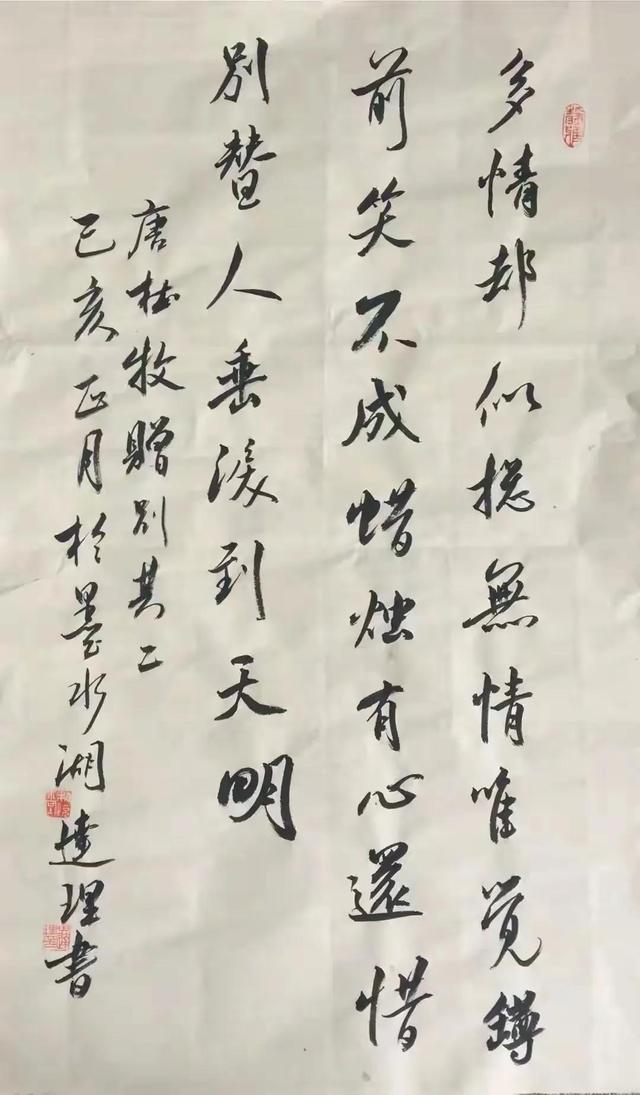 多情却似捴無情唯觉鐏
前笑不成蜡烛有心還惜
别替人垂淚到天明
唐杜牧贈别其二
己亥正月於墨水湖達理書